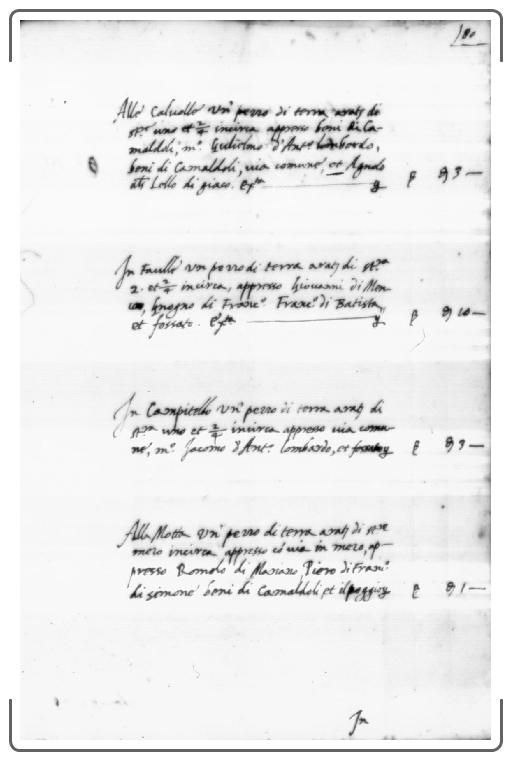 180
Alle Caluelle Un pezzo di terra arat.a di
st.ra uno et 2/4 incirca appresso beni di Ca-
maldoli, m.o Gulielmo d'Ant.o lombardo,
beni di Camaldoli, uia comune, et Agnolo
Lello di giaco.
3 —
In Faulle Un pezzo di terra arat di st.ra
2. et 2/4 incirca, appresso Giouanni di Men
di Franc.o Franc.o di Batista,
et fossato.
10 —
In Campitello Un pezzo di terra arat di
st.ra uno et 2/4 incirca appresso uia comu-
ne, m.o Jacomo d'Ant.o lombardo, et fossato
3 —
Alla Motta Un pezzo di terra arat di st.ro
mezo incirca appresso có uia in mezo, ap-
presso Romolo di Mariano, Piero di Franc.o
di simone beni di Camaldoli et il poggio
1 —
In